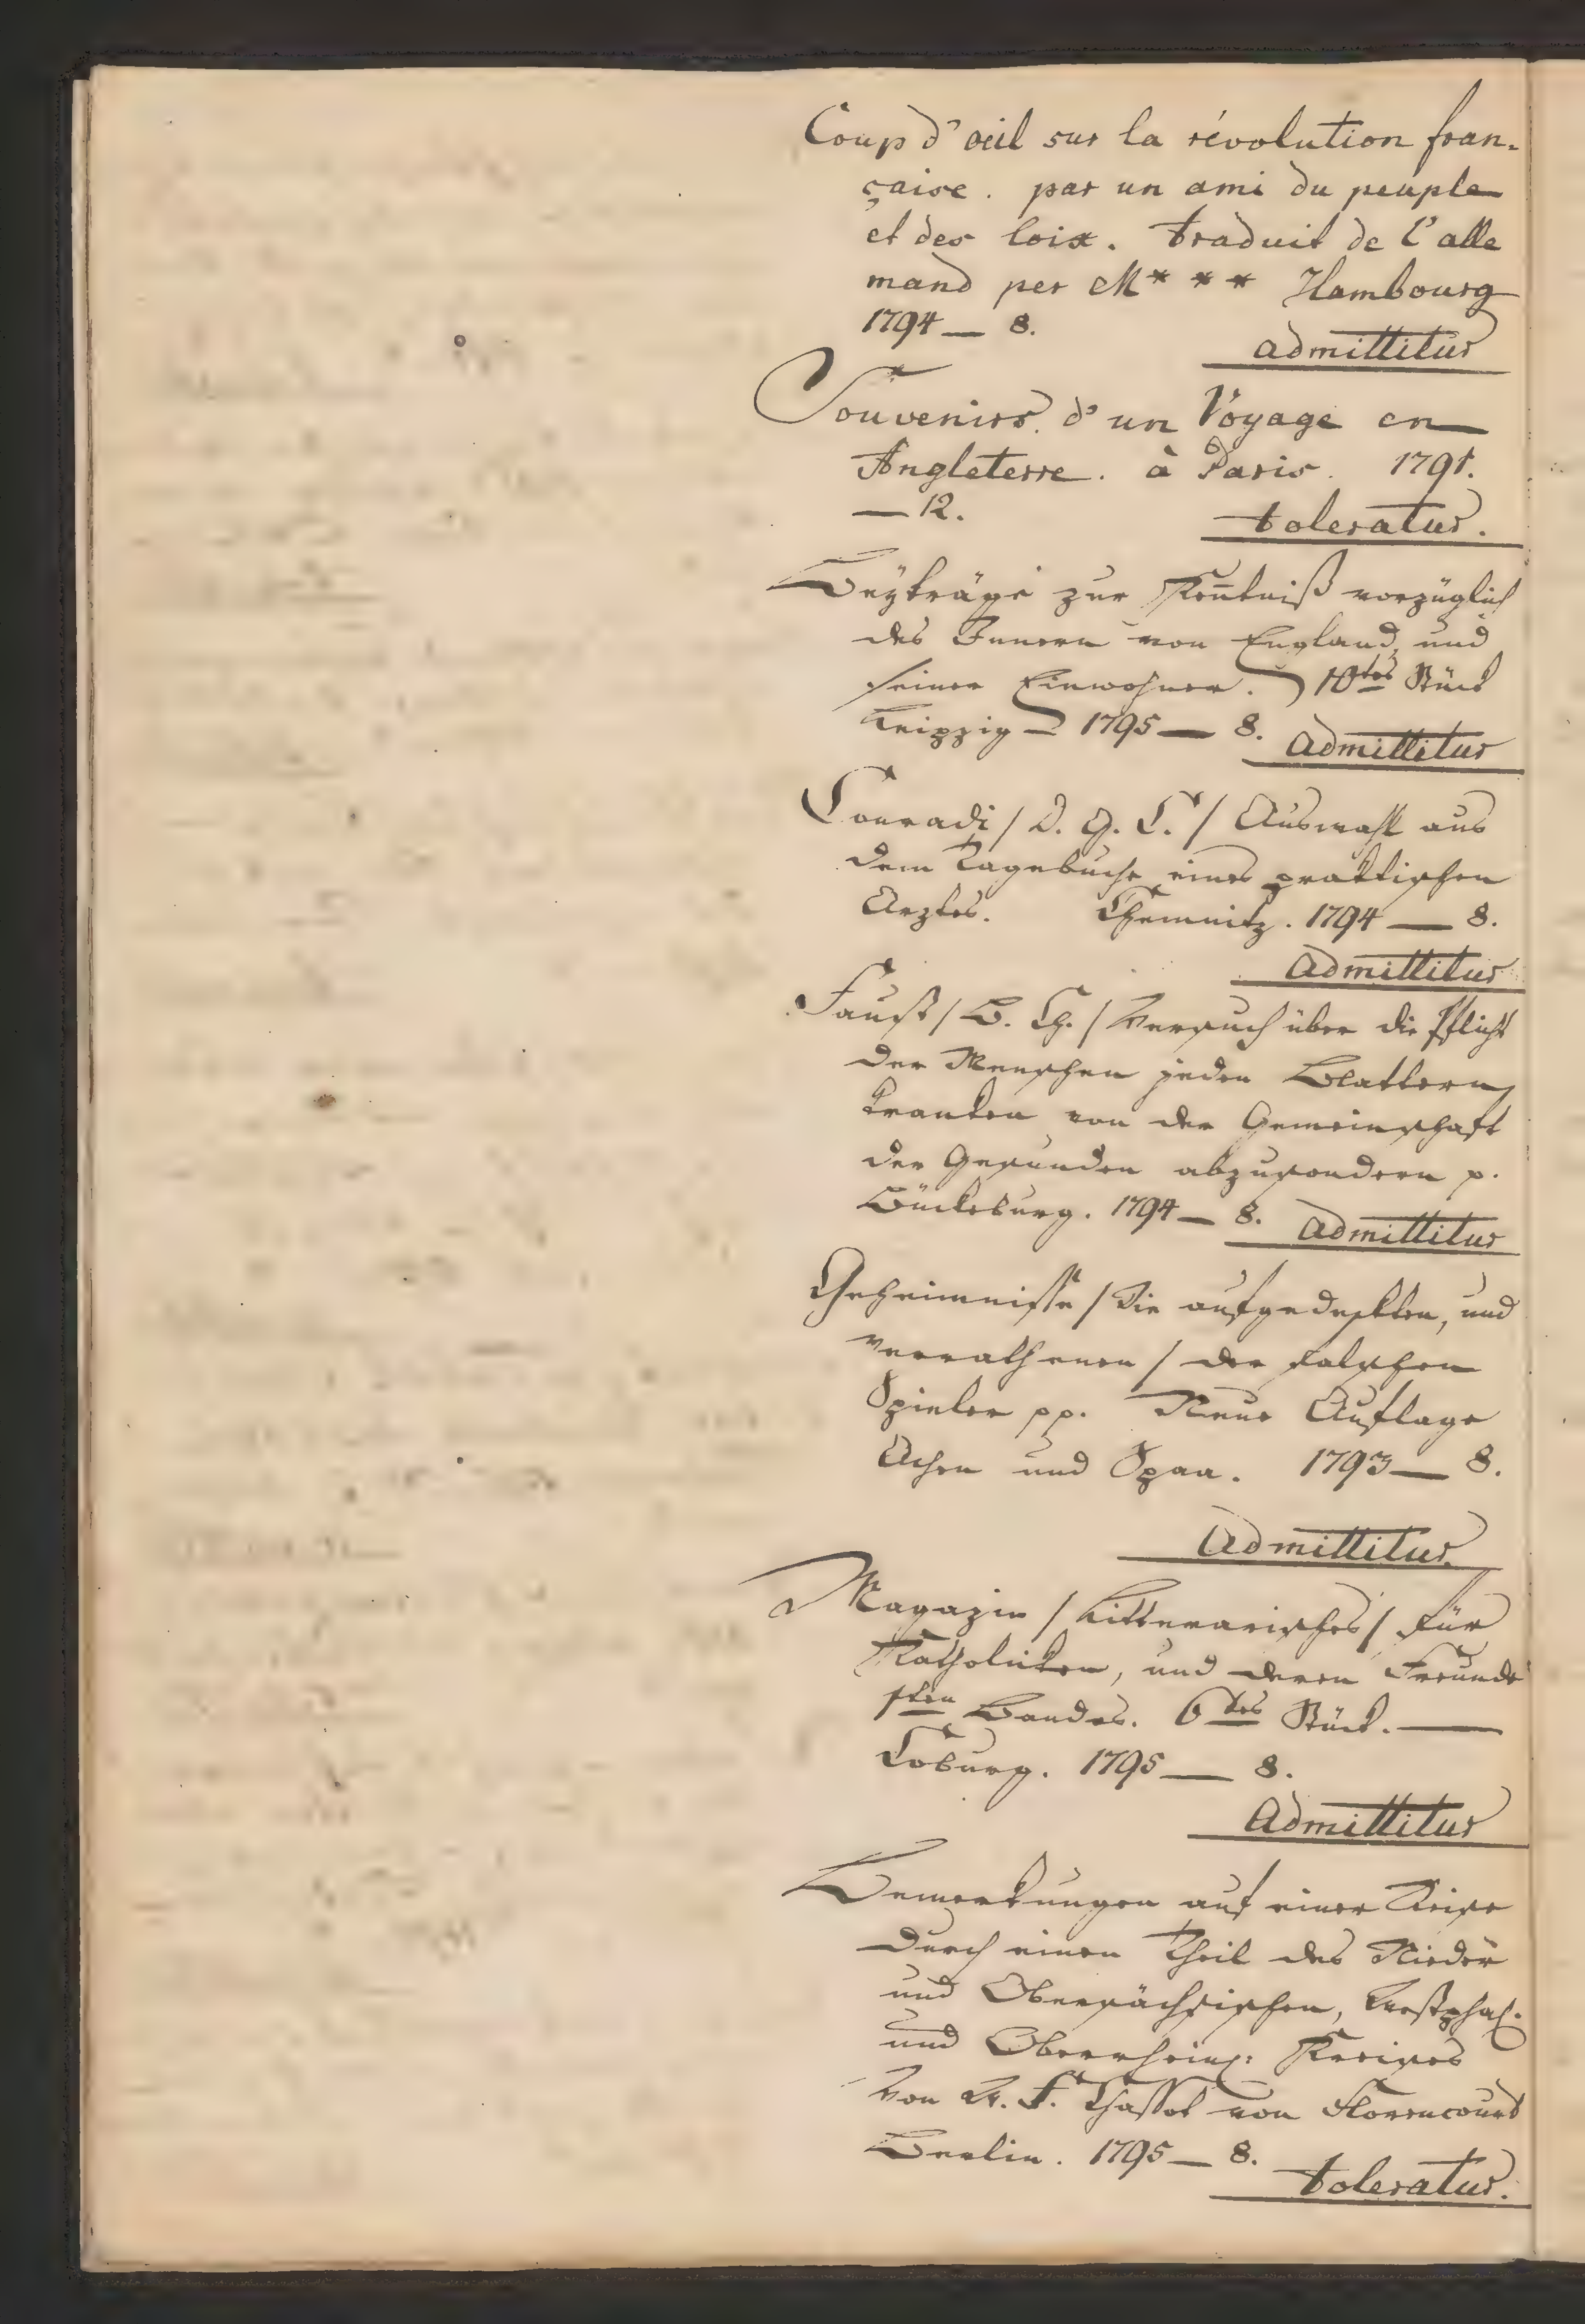 Coup d'œil sur la révolution fran-
çaise. par un ami du peuple
et des loix. traduit de l'alle
mand per M*** Hambourg
1794 — 8.
admittitur
Souvenirs d'un Voyage en
Angleterre. à Paris. 1791.
— 12.
toleratur.
Beyträge zur Keñtniß vorzüglich
des Innern von England, und
seiner Einwohner. 10tes Stück
Leipzig — 1795 — 8.
Admittitur
Conradi / D. G. C. / Auswahl aus
dem Tagebuche eines praktischen
Arztes. Chemnitz. 1794 — 8.
Admittitur
Faust / B. Ch. / Versuch über die Pflicht
der Menschen jeden Blattern
kranken von der Gemeinschaft
der Gesunden abzusondern p.
Bückeburg. 1794 — 8.
Admittitur
Geheimnisse / Die aufgedeckten, und
verrathenen / der falschen
Spieler pp. Neue Auflage
Achen und Spaa. 1793 — 8.
Admittitur.
Magazin / Litterarisches / für
Katholicken, und deren Freunde
1ten Bandes. 6tes Stück. —
Coburg. 1795 — 8.
Admittitur
Bemerkungen auf einer Reise
durch einen Theil des Nieder
und Obersächsischen, Westphäl.
und Oberrhein: Kreises
Von K. F. Chassot von Florencourt
Berlin. 1795 — 8.
toleratur.